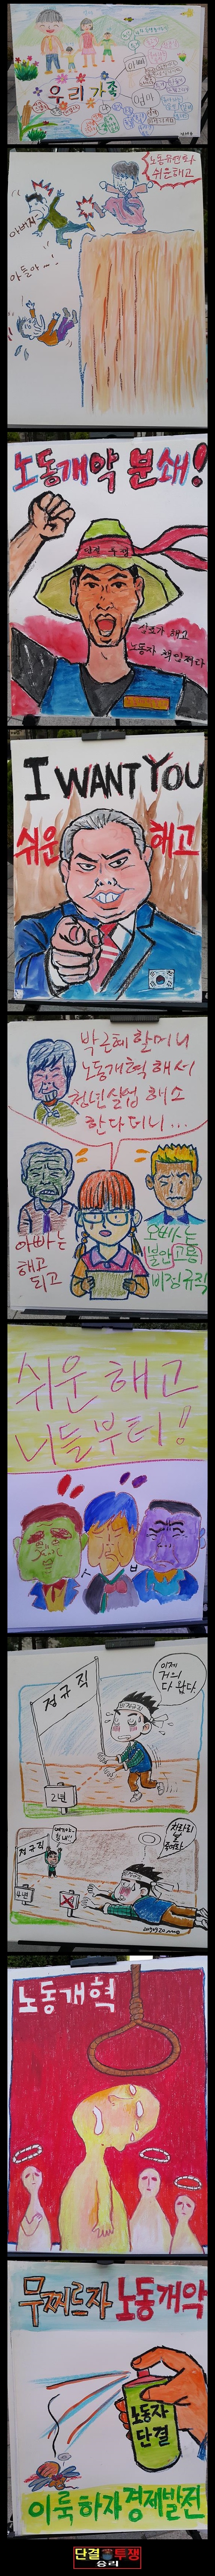 우리 가족
아빠
엄마
노동유연화
쉬운해고
아버지
아들아...!
노동개악 분쇄!
단결 투쟁
노동자 책임져다
I WANT YOU
쉬운 해고
박근혜 할머니
노동개혁 해서
청년실업 해소
한다더니...
아빠는
해고
되고
오빠는
불안고용
비정규직
쉬운 해고
니들부터!
정규직
이제
거의
다 왔다.
비정규직
2년
정규직
차라리
날
죽여라
4년
노동개혁
무찌르자 노동개악
노동자
단결
이룩하자 경제발전
단결 투쟁
승리